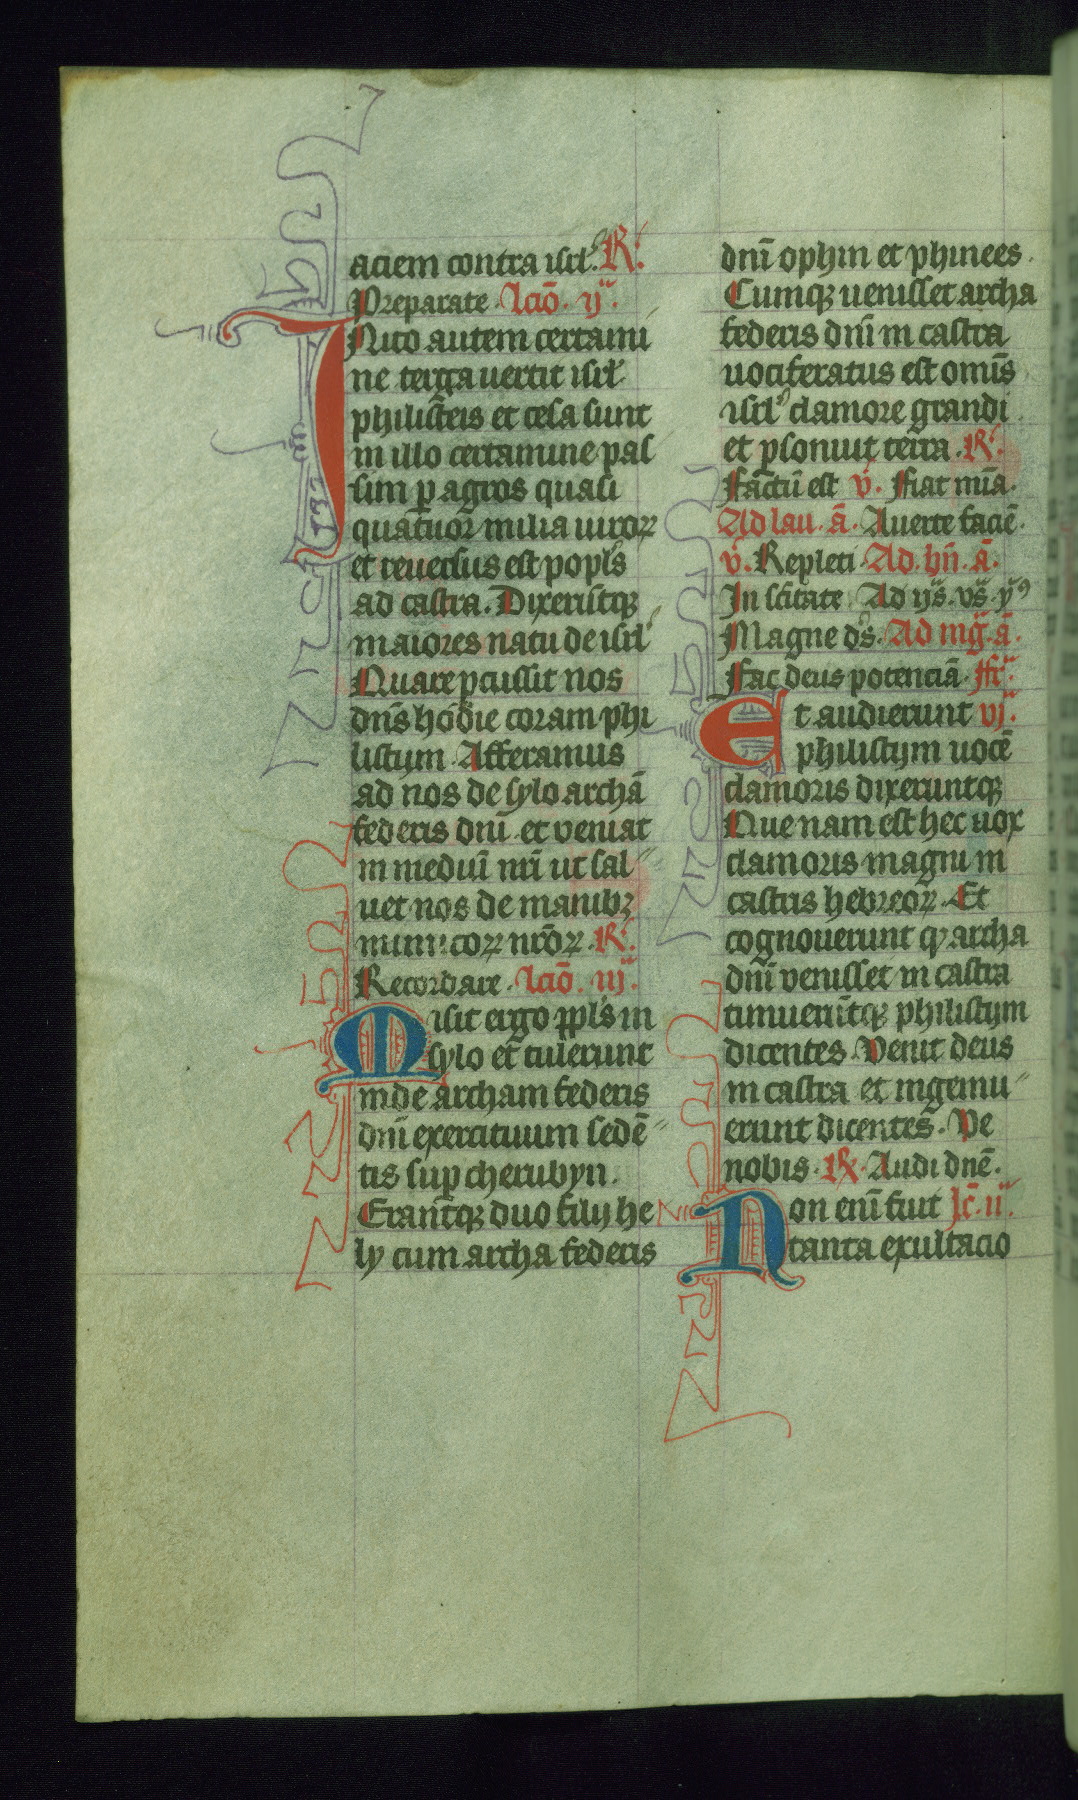 aciem contra isrl̕. R̕:
Preparate. lcio̅. ij̋.
INito autem certami
ne terga uertit isrl̕
philisteis et cesa sunt
in illo certamine pas
sim ꝑ agros quasi
quatuor milia uiroꝝ
et reuersus est popl̕s
ad castra. Dixerūtqꝫ
maiores natu de isrl̕
Quare ꝑcussit nos
dn̅s hodie coram phi
listijm. Afferamus
ad nos de sylo archā
federis dn̅i et veniat
in mediū nr̅i ut sal
uet nos de manibꝫ
inimicoꝝ nr̅oꝝ. R̕:
Recordare. lcio̅. iij̋.
Misit ergo ppl̕s in
sylo et tulerunt
inde archam federis
dn̅i exercituum sedē
tis suꝑ cherubyn.
Erantqꝫ duo filij he
ly cum archa federis
dn̅i ophin et phinees.
Cumqꝫ uenisset archa
federis dn̅i in castra
uociferatus est omīs
isrl̕ clamore grandi
et ꝑsonuit terra. R̕:
Factū est v̕. Fiat mīa.
Ad lau. a̅. Auerte faciē.
v̕. Repleti. Ad. bn̅. a̅.
In sc̅itate. Ad ij̋s. vs̋. ẏꝰ
Magne ds̅. Ad mg̅. a̅.
Fac deus potenciā. fr̅.
Et audierunt vj̋.
philistijm uocē
clamoris dixeruntqꝫ
Que nam est hec uox
clamoris magni in
castris hebreoꝝ. Et
cognouerunt ꝙ archa
dn̅i venisset in castra
timuerūtqꝫ philistijm
dicentes. Venit deus
in castra et ingemu
erunt dicentes. Ve
nobis. R̕. Audi dn̅e.
Non eni̅ fuit lc̅. ij̋.
tanta exultacio